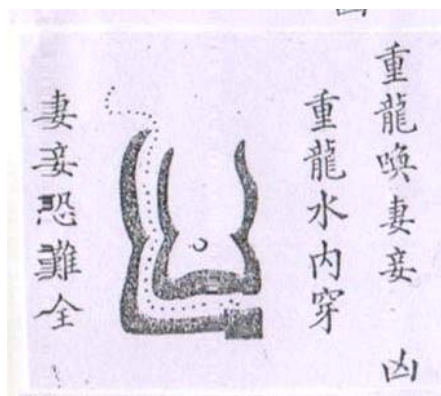 重龍喚妻妾 凶
重龍水內穿
妻妾恐難全